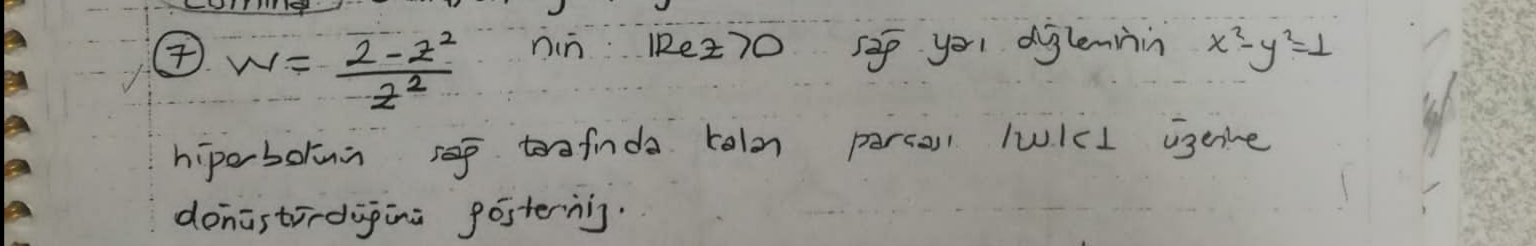 ⑦ w = (2 - z²)/z² nin Re z > 0 sağ yarı düzleminin x² - y² = 1
hiperbolünün sağ tarafında kalan parçası |w| < 1 üzerine
dönüştürdüğünü gösteriniz.